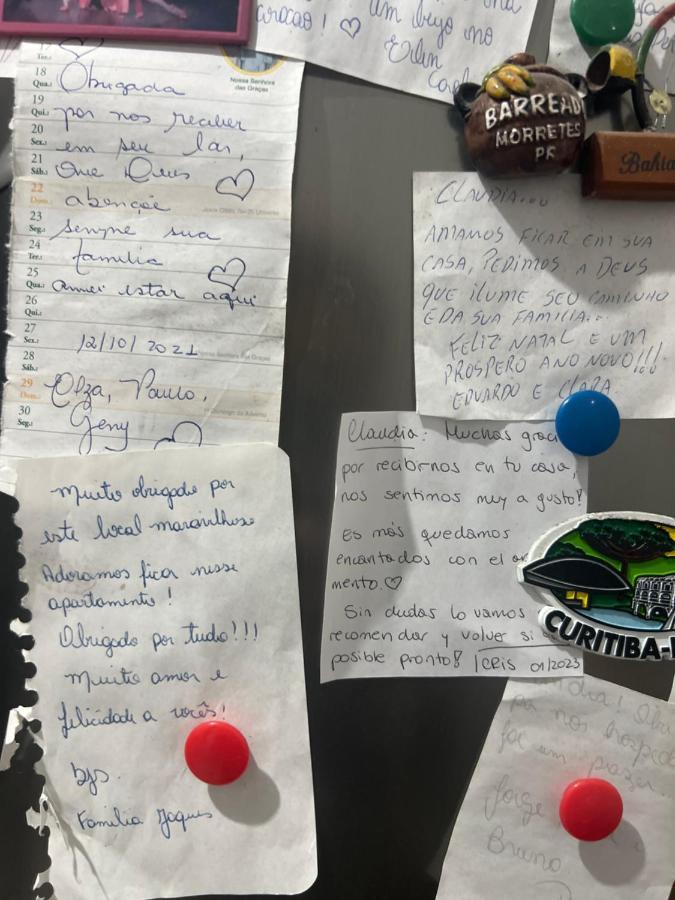 aração! ♡ um beijo no
17
Ter.:
18
Qua.:
19
Qui.:
20
Sex.:
21
Sáb.:
22
Dom.:
23
Seg.:
24
Ter.:
25
Qua.:
26
Qui.:
27
Sex.:
28
Sáb.:
29
Dom.:
30
Seg.:
Nossa Senhora
das Graças
Obrigada
por nos receber
em seu lar,
Que Deus
abençoe
sempre sua
familia
amei estar aqui
12/10/2021
Elza, Paulo,
Geny
BARREAD
MORRETES
PR
Bahia
CLAUDIA....
AMAMOS FICAR EM SUA
CASA, PEDIMOS A DEUS
QUE ILUME SEU CAMINHO
E DA SUA FAMILIA...
FELIZ NATAL E UM
PROSPERO ANO NOVO!!!
EDUARDO E CLARA
Claudia: Muchas grac
por recibirnos en tu casa,
nos sentimos muy a gusto!
Es más quedamos
encantados con el
mento. ♡
Sin dudas lo vamos
recomendar y volver si
posible pronto! CRIS 01/2023
CURITIBA-
muito obrigado por
este local maravilhoso
Adoramos fica nesse
apartamento!
Obrigado por tudo!!!
muito amor e
felicidade a vocês!
bjs.
Familia Jaques
por nos hosped
foi um prazer.
Jorge
Bruno